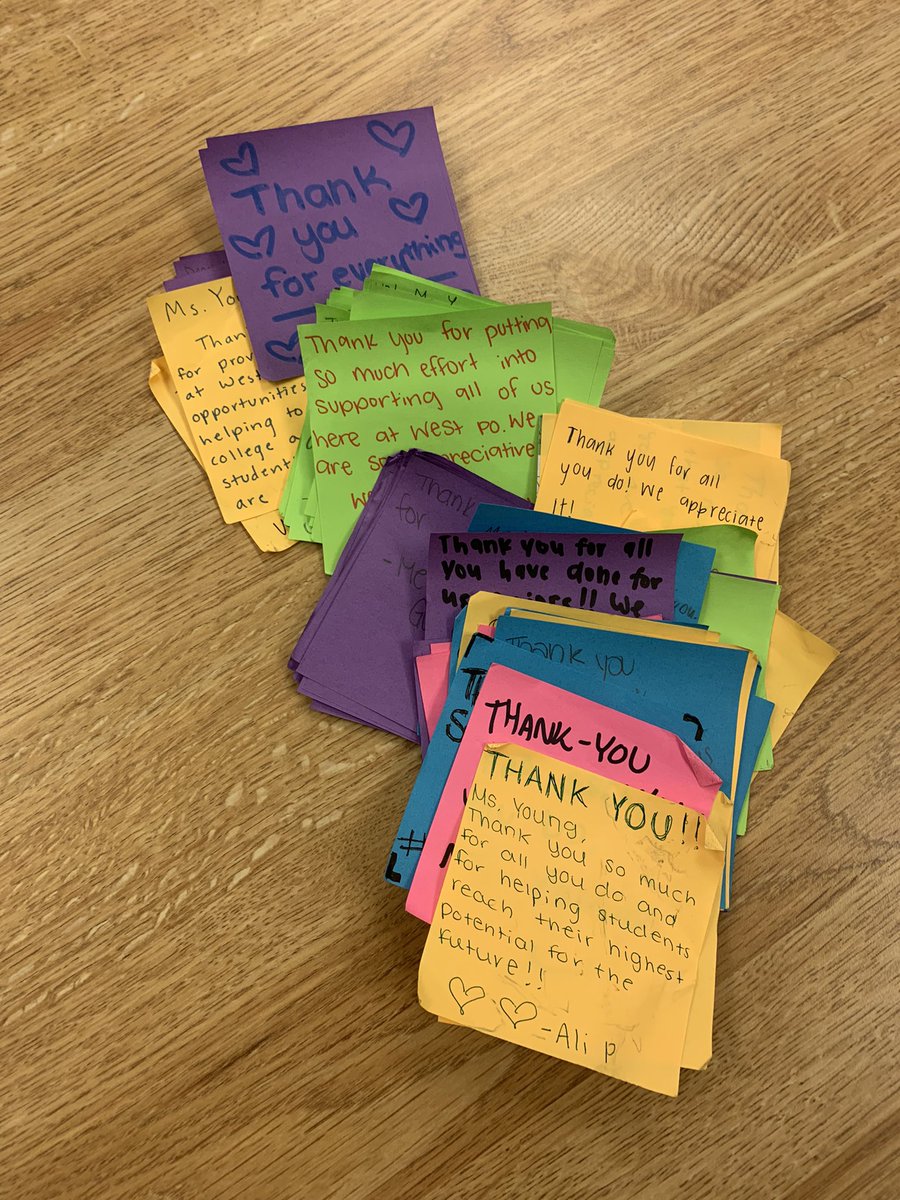 Thank
you
for everything
Ms. You
Than
for prov
at West
opportunities
helping to
college a
student
are
Thank you for putting
so much effort into
supporting all of us
here at West Po. We
are so appreciative
we
Thank you for all
you do! We appreciate
it!
Thank
for
-Me
Thank you for all
you have done for
us seniors!! We
you.
Thank you
THANK-YOU
#
THANK YOU!!
Ms. Young,
Thank you so much
for all you do and
for helping students
reach their highest
potential for the
future!!
-Ali P